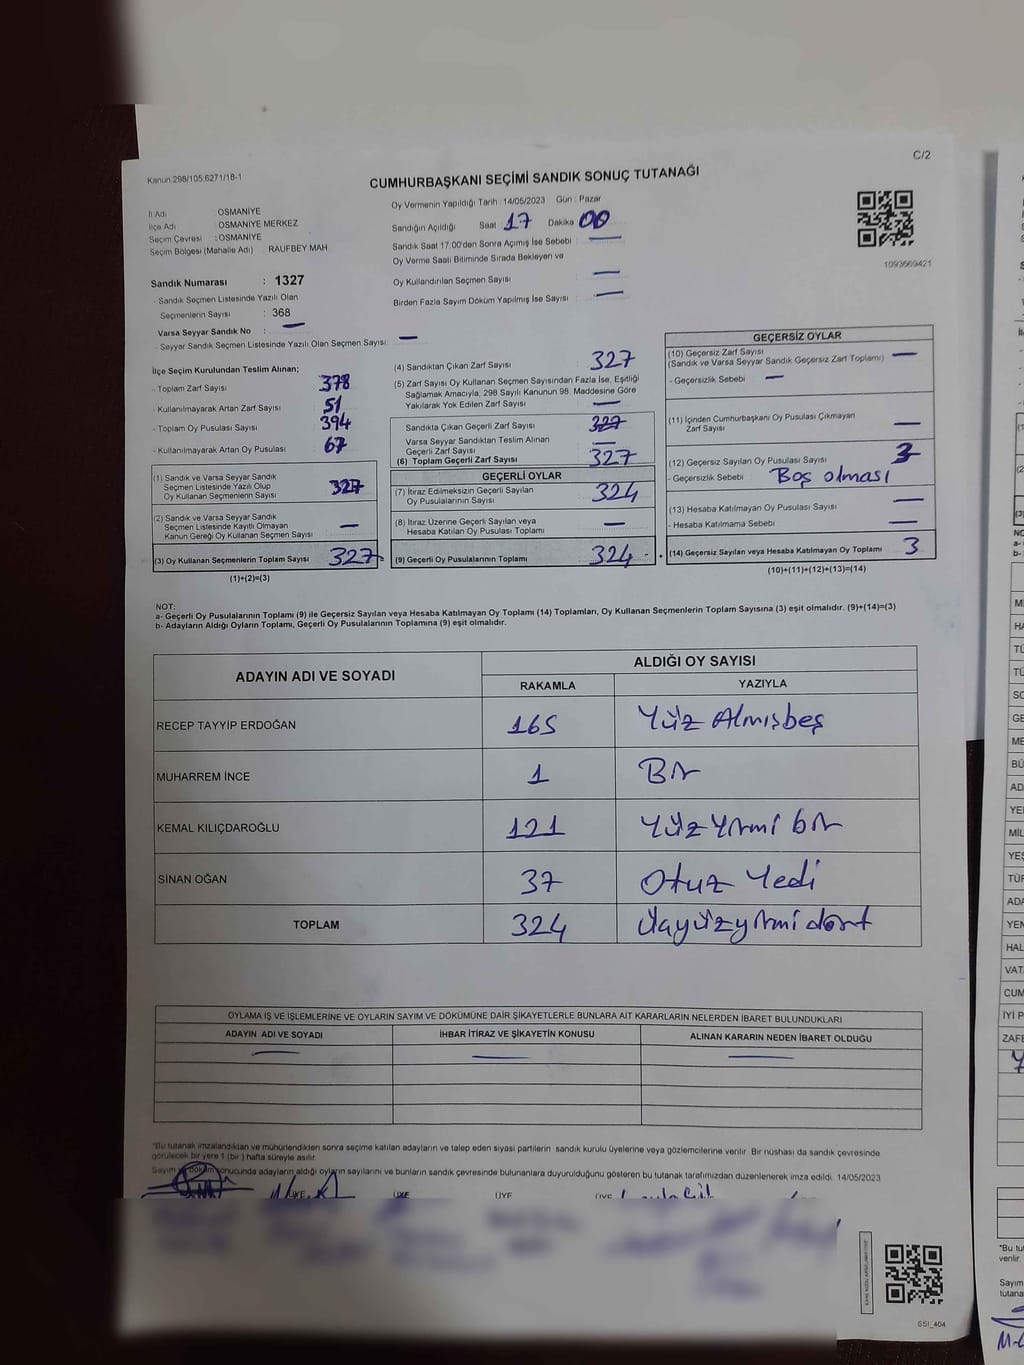 C/2
Kanun:298/105:6271/18-1
CUMHURBAŞKANI SEÇİMİ SANDIK SONUÇ TUTANAĞI
İl Adı : OSMANİYE
İlçe Adı : OSMANİYE MERKEZ
Seçim Çevresi : OSMANİYE
Seçim Bölgesi (Mahalle Adı) : RAUFBEY MAH
Oy Vermenin Yapıldığı Tarih : 14/05/2023 Gün : Pazar
Sandığın Açıldığı Saat 17 Dakika 00
Sandık Saat 17.00'den Sonra Açımış İse Sebebi : —
Oy Verme Saati Bitiminde Sırada Bekleyen ve
Oy Kullandırılan Seçmen Sayısı —
Birden Fazla Sayım Döküm Yapılmış İse Sayısı : —
1093669421
Sandık Numarası : 1327
- Sandık Seçmen Listesinde Yazılı Olan
Seçmenlerin Sayısı : 368
Varsa Seyyar Sandık No : —
- Seyyar Sandık Seçmen Listesinde Yazılı Olan Seçmen Sayısı: —
İlçe Seçim Kurulundan Teslim Alınan;
- Toplam Zarf Sayısı 378
- Kullanılmayarak Artan Zarf Sayısı 51
- Toplam Oy Pusulası Sayısı 394
- Kullanılmayarak Artan Oy Pusulası 67
(1) Sandık ve Varsa Seyyar Sandık
Seçmen Listesinde Yazılı Olup
Oy Kullanan Seçmenlerin Sayısı 327
(2) Sandık ve Varsa Seyyar Sandık
Seçmen Listesinde Kayıtlı Olmayan
Kanun Gereği Oy Kullanan Seçmen Sayısı —
(3) Oy Kullanan Seçmenlerin Toplam Sayısı 327=
(1)+(2)=(3)
(4) Sandıktan Çıkan Zarf Sayısı 327
(5) Zarf Sayısı Oy Kullanan Seçmen Sayısından Fazla İse, Eşitliği
Sağlamak Amacıyla, 298 Sayılı Kanunun 98. Maddesine Göre
Yakılarak Yok Edilen Zarf Sayısı —
Sandıkta Çıkan Geçerli Zarf Sayısı 327
Varsa Seyyar Sandıktan Teslim Alınan
Geçerli Zarf Sayısı —
(6) Toplam Geçerli Zarf Sayısı 327
GEÇERLİ OYLAR
(7) İtiraz Edilmeksizin Geçerli Sayılan
Oy Pusulalarının Sayısı 324
(8) İtiraz Üzerine Geçerli Sayılan veya
Hesaba Katılan Oy Pusulası Toplamı —
(9) Geçerli Oy Pusulalarının Toplamı 324
GEÇERSİZ OYLAR
(10) Geçersiz Zarf Sayısı
(Sandık ve Varsa Seyyar Sandık Geçersiz Zarf Toplamı) —
- Geçersizlik Sebebi —
(11) İçinden Cumhurbaşkanı Oy Pusulası Çıkmayan
Zarf Sayısı —
(12) Geçersiz Sayılan Oy Pusulası Sayısı 3
- Geçersizlik Sebebi Boş olması
(13) Hesaba Katılmayan Oy Pusulası Sayısı —
- Hesaba Katılmama Sebebi —
+ (14) Geçersiz Sayılan veya Hesaba Katılmayan Oy Toplamı 3
(10)+(11)+(12)+(13)=(14)
NOT:
a- Geçerli Oy Pusulalarının Toplamı (9) ile Geçersiz Sayılan veya Hesaba Katılmayan Oy Toplamı (14) Toplamları, Oy Kullanan Seçmenlerin Toplam Sayısına (3) eşit olmalıdır. (9)+(14)=(3)
b- Adayların Aldığı Oyların Toplamı, Geçerli Oy Pusulalarının Toplamına (9) eşit olmalıdır.
ADAYIN ADI VE SOYADI
ALDIĞI OY SAYISI
RAKAMLA YAZIYLA
RECEP TAYYİP ERDOĞAN 165 Yüz Altmışbeş
MUHARREM İNCE 1 Bir
KEMAL KILIÇDAROĞLU 121 Yüz Yirmi bir
SİNAN OĞAN 37 Otuz Yedi
TOPLAM 324 Üçyüzyirmi dört
OYLAMA İŞ VE İŞLEMLERİNE VE OYLARIN SAYIM VE DÖKÜMÜNE DAİR ŞİKAYETLERLE BUNLARA AİT KARARLARIN NELERDEN İBARET BULUNDUKLARI
ADAYIN ADI VE SOYADI İHBAR İTİRAZ VE ŞİKAYETİN KONUSU ALINAN KARARIN NEDEN İBARET OLDUĞU
— — —
*Bu tutanak imzalandıktan ve mühürlendikten sonra seçime katılan adayların ve talep eden siyasi partilerin sandık kurulu üyelerine veya gözlemcilerine verilir. Bir nüshası da sandık çevresinde
görülecek bir yere 1 (bir) hafta süreyle asılır.
Sayım ve döküm sonucunda adayların aldığı oyların sayılarını ve bunların sandık çevresinde bulunanlara duyurulduğunu gösteren bu tutanak tarafımızdan düzenlenerek imza edildi. 14/05/2023
ÜYE ÜYE ÜYE
SSİ_404